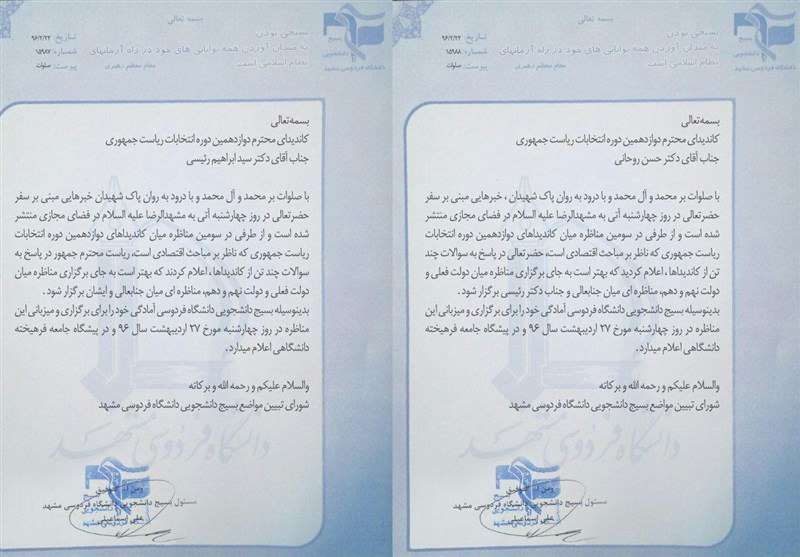 بسمه تعالی
بسیجی بودن
به میدان آوردن همه توانایی های خود در راه آرمانهای
نظام اسلامی است
مقام معظم رهبری
تاریخ: ۹۶/۲/۲۲
شماره: ۱۵۹۸۸
پیوست: صلوات
بسیج دانشجویی
دانشگاه فردوسی مشهد
بسمه‌تعالی
کاندیدای محترم دوازدهمین دوره انتخابات ریاست جمهوری
جناب آقای دکتر حسن روحانی
با صلوات بر محمد و آل محمد و با درود به روان پاک شهیدان ، خبرهایی مبنی بر سفر
حضرتعالی در روز چهارشنبه آتی به مشهدالرضا علیه السلام در فضای مجازی منتشر
شده است و از طرفی در سومین مناظره میان کاندیداهای دوازدهمین دوره انتخابات
ریاست جمهوری که ناظر بر مباحث اقتصادی است، حضرتعالی در پاسخ به سوالات چند
تن از کاندیداها ، اعلام کردید که بهتر است به جای برگزاری مناظره میان دولت فعلی و
دولت نهم و دهم، مناظره ای میان جنابعالی و جناب دکتر رئیسی برگزار شود .
بدینوسیله بسیج دانشجویی دانشگاه فردوسی آمادگی خود را برای برگزاری و میزبانی این
مناظره در روز چهارشنبه مورخ ۲۷ اردیبهشت سال ۹۶ و در پیشگاه جامعه فرهیخته
دانشگاهی اعلام میدارد .
والسلام علیکم و رحمه الله و برکاته
شورای تبیین مواضع بسیج دانشجویی دانشگاه فردوسی مشهد
دانشگاه فردوسی مشهد
مسئول بسیج دانشجویی دانشگاه فردوسی مشهد
علی اسماعیلی
بسمه تعالی
بسیجی بودن
به میدان آوردن همه توانایی های خود در راه آرمانهای
نظام اسلامی است
مقام معظم رهبری
تاریخ: ۹۶/۲/۲۲
شماره: ۱۵۹۸۷
پیوست: صلوات
بسیج دانشجویی
دانشگاه فردوسی مشهد
بسمه‌تعالی
کاندیدای محترم دوازدهمین دوره انتخابات ریاست جمهوری
جناب آقای دکتر سید ابراهیم رئیسی
با صلوات بر محمد و آل محمد و با درود به روان پاک شهیدان، خبرهایی مبنی بر سفر
حضرتعالی در روز چهارشنبه آتی به مشهدالرضا علیه السلام در فضای مجازی منتشر
شده است و از طرفی در سومین مناظره میان کاندیداهای دوازدهمین دوره انتخابات
ریاست جمهوری که ناظر بر مباحث اقتصادی است، ریاست محترم جمهور در پاسخ به
سوالات چند تن از کاندیداها ، اعلام کردند که بهتر است به جای برگزاری مناظره میان
دولت فعلی و دولت نهم و دهم، مناظره ای میان جنابعالی و ایشان برگزار شود .
بدینوسیله بسیج دانشجویی دانشگاه فردوسی آمادگی خود را برای برگزاری و میزبانی این
مناظره در روز چهارشنبه مورخ ۲۷ اردیبهشت سال ۹۶ و در پیشگاه جامعه فرهیخته
دانشگاهی اعلام میدارد .
والسلام علیکم و رحمه الله و برکاته
شورای تبیین مواضع بسیج دانشجویی دانشگاه فردوسی مشهد
دانشگاه فردوسی مشهد
مسئول بسیج دانشجویی دانشگاه فردوسی مشهد
علی اسماعیلی